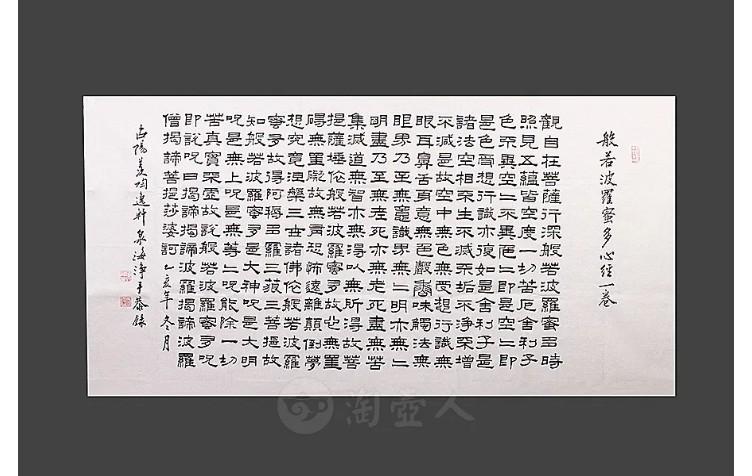 般若波羅蜜多心經一卷
觀自在菩薩行深般若波羅蜜多時
照見五蘊皆空度一切苦厄舍利子
色不異空二不異色二即是空二即
是色受想行識亦復如是舍利子是
諸法空相不生不滅不垢不淨不增
不減是故空中無色無受想行識無
眼耳鼻舌身意無色聲香味觸法無
眼界乃至無意識界無二明亦無二
明盡乃至無老死亦無老死盡無苦
集滅道無智亦無得以無所得故菩
提薩埵依般若波羅蜜多故心無罣
礙無罣礙故無有恐怖遠離顛倒夢
想究竟涅槃三世諸佛依般若波羅
蜜多故得阿耨多羅三藐三菩提故
知般若波羅蜜多是大神呪是大明
呪是無上呪是無等二呪能除一切
苦真實不虛故說般若波羅蜜多呪
即說呪曰揭諦揭諦波羅揭諦波羅
僧揭諦菩提莎婆訶 乙亥年冬月
陽羨陶逸軒泉海淨手恭錄
淘壺人